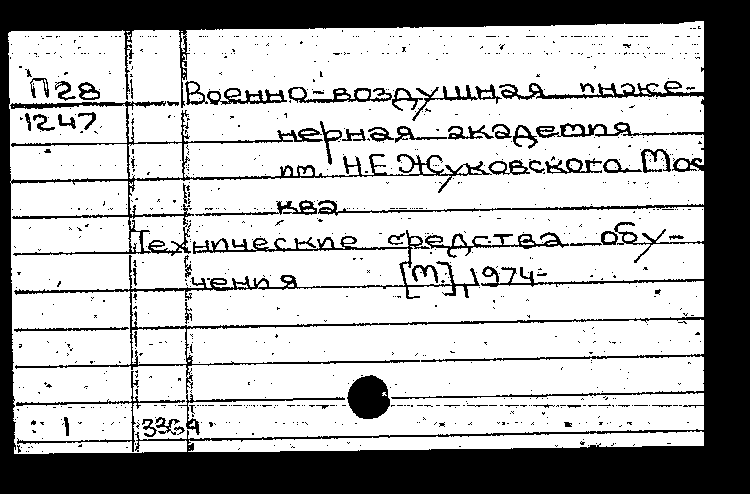 П28 Военно-воздушная инже-
1247 нерная академия
им. Н.Е.Жуковского. Мос
ква.
Технические средства обу-
чения [М.], 1974-
1 3369